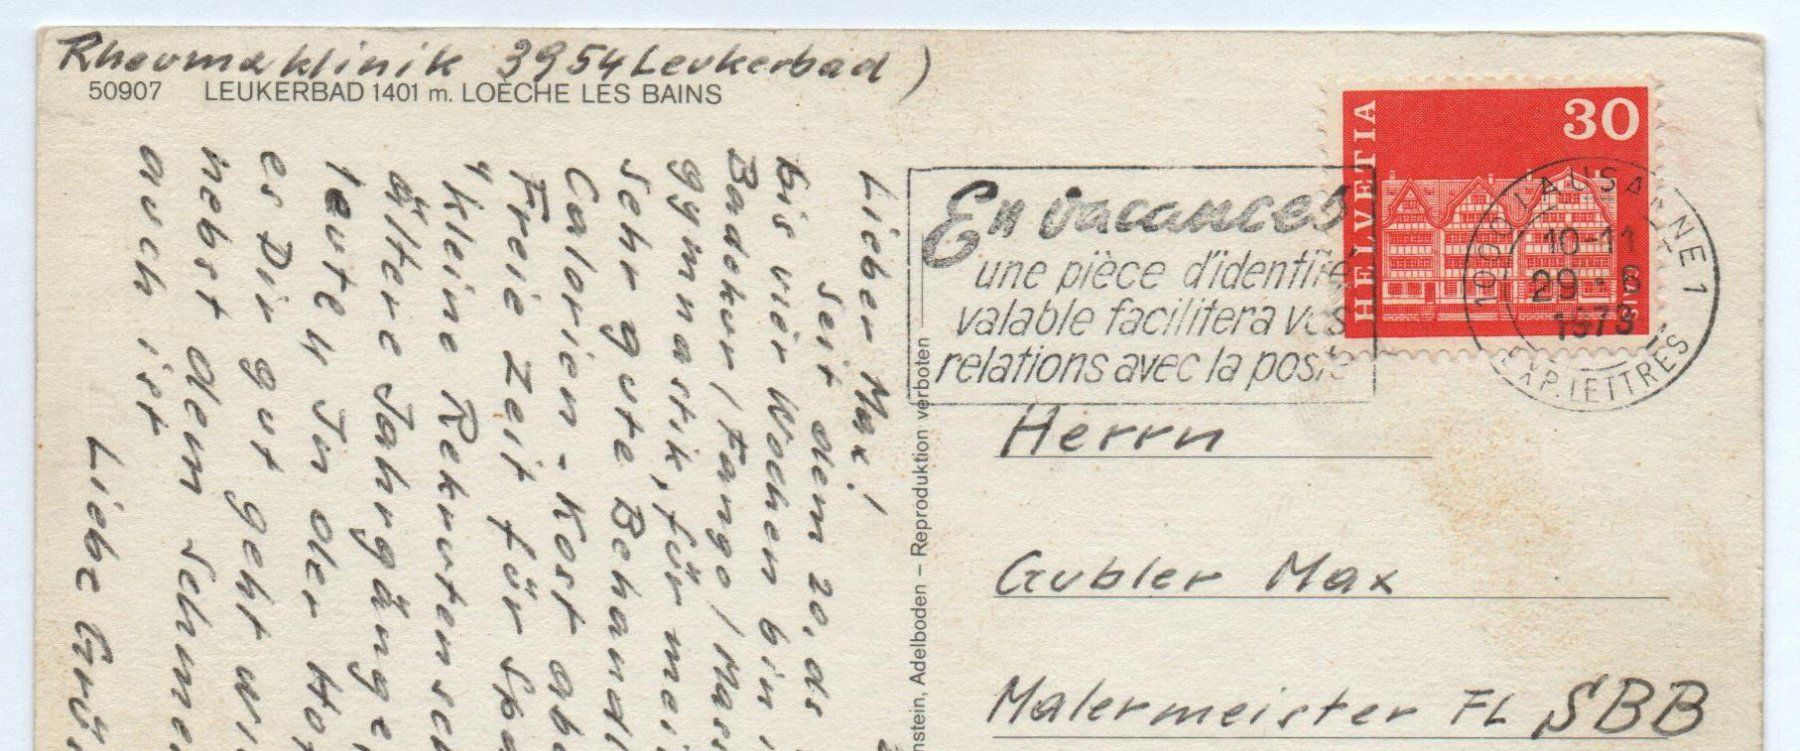 Rheumaklinik 3954 Leukerbad )
50907 LEUKERBAD 1401 m. LOÈCHE LES BAINS
Lieber Max!
Seit dem 20. ds
bis vier Wochen bin i
Badekur / Fango / Mas
gymnastik, für mei
sehr gute Behandl
Calorien-Kost ab
Freie Zeit für Spa
"kleine Rekrutensch
ältere Jahrgänge
leute" In der Hof
es Dir gut geht un
nebst dem Schme
auch ist
Liebe Grü
nstein, Adelboden – Reproduktion verboten
En vacances
une pièce d'identité
valable facilitera vos
relations avec la poste
HELVETIA
30
1000 LAUSANNE 1
10-11
29.-6
1973
EXP. LETTRES
GAIS
Herrn
Gubler Max
Malermeister FL SBB